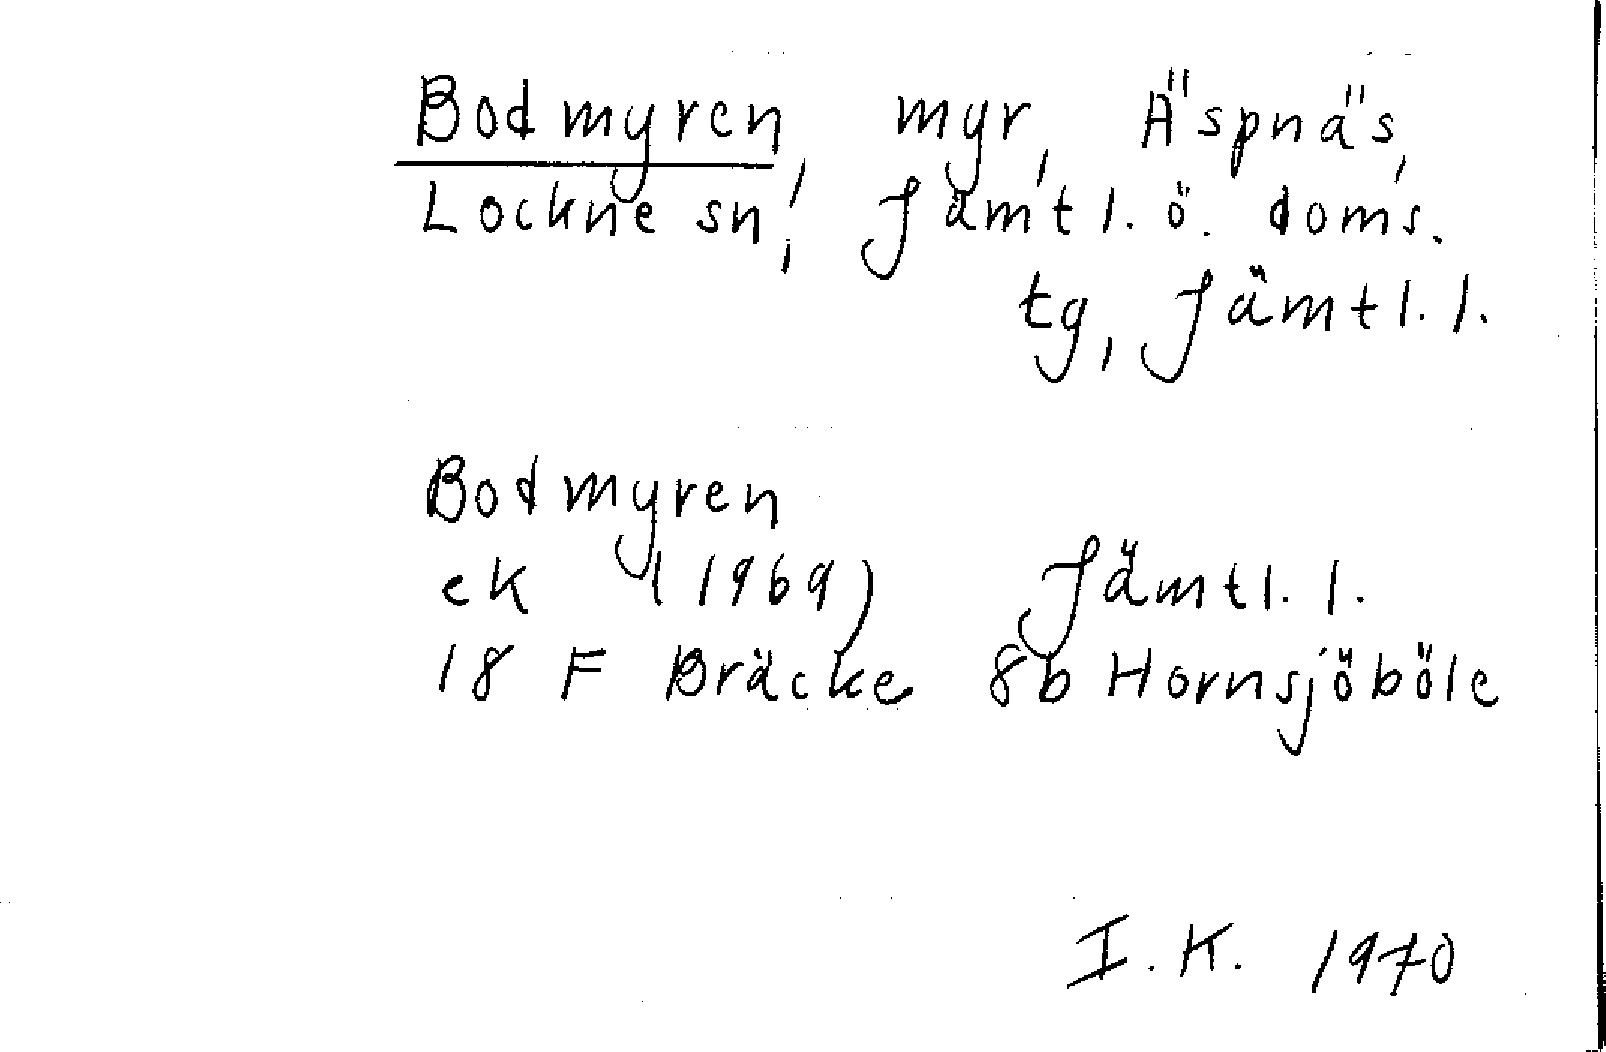 Bodmyren, myr, Äspnäs,
Lockne sn, Jämtl. ö. doms.
tg, Jämtl. l.
Bodmyren
ek (1969) Jämtl. l.
18 F Bräcke 8b Hornsjöböle
I.K. 1970